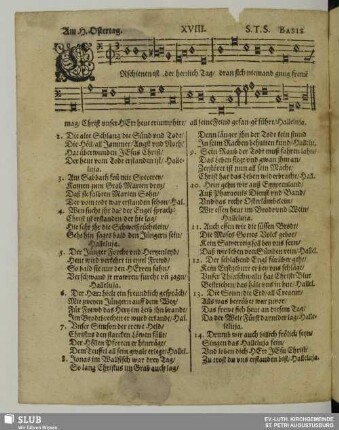 Am H. Ostertag. XVIII. S.T.S. BASIS
ERschienen ist der herrlich Tag/ dran sich niemand gnug frewn
mag/ Christ unser HErr heut triumphirt/ all seine Feind gefangen führt/ Halleluja.
2. Die alte Schlang/ die Sünd und Todt/
Die Höll/ all Jammer/ Angst und Noth/
Hat überwunden JEsus Christ/
Der heut vom Todt erstanden ist/ Halle-
luja.
3. Am Sabbath früh mit Specerey/
Kamen zum Grab Marien drey/
Daß sie salbeten Marien Sohn/
Der vom todt war erstanden schon/ Hal.
4. Wen sucht ihr da? der Engel sprach/
Christ ist erstanden der hie lag/
Hie seht ihr die Schweißtüchelein/
Gehet hin/ sagts bald den Jüngern sein/
Halleluja.
5. Der Jünger Furcht und Hertzenleid/
Heut wird verkehrt in eitel Frewd/
So bald sie nur den HErrn sahn/
Verschwand ir trawren furcht uñ zagn/
Halleluja.
6. Der Herr hielt ein freundlich gespräch/
Mit zweyen Jüngern auff dem Weg/
Für Frewd das Hertz im Leib ihn brandt/
Im Brodtbrechen er ward erkandt/ Hal.
7. Unser Simson der trewe Held/
Christus den starcken Löwen fällt/
Der Höllen Pforten er hinträgt/
Dem Teuffel all sein gwalt erlegt/ Hallel.
8. Jonas im Wallfisch war drey Tag/
So lang Christus im Grab auch lag/
Denn länger ihn der Todt kein stund
In seim Rachen behalten kund/ Hallelu.
9. Sein Raub der Todt must fahren lahn/
Das Leben siegt und gwan ihm an/
Zerstöret ist nun all sein Macht/
Christ hat das Leben wiederbracht/ Hal.
10. Heut gehn wir aus Egyptenland/
Auß Pharaonis Dienst und Band/
Und das recht Osterlämbelein/
Wir essen heut im Brodt und Wein/
Halleluja.
11. Auch essen wir die süssen Brodt/
Die Moses Gottes Volck gebot/
Kein Sawrteig soll bey uns sein/
Daß wir leben von Sünden rein/ Hallel.
12. Der schlahend Engl fürüber geht/
Kein Erstgeburt er bey uns schlägt/
Unser Thürschwelln hat Christi Blut
Bestrichen/ das hält uns in der hut/ Hal.
13. Die Sonn/ die Erd/ all Creatur/
Alls was betrübet war zuvor/
Das frewt sich heut an diesem Tag/
Da der Welt Fürst darnider lag/ Hal-
leluja.
14. Drumb wir auch billich frölich seyn/
Singen das Halleluja fein/
Und loben dich HErr JEsu Christ/
Zu trost du uns erstanden bist/ Halleluja.
SLUB
Wir führen Wissen.
EV.-LUTH. KIRCHGEMEINDE
ST. PETRI AUGUSTUSBURG